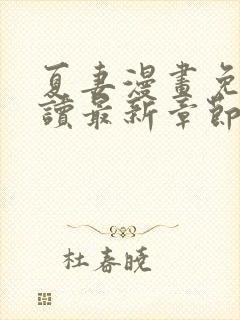 夏妻漫畫免
讀最新章節
杜春曉